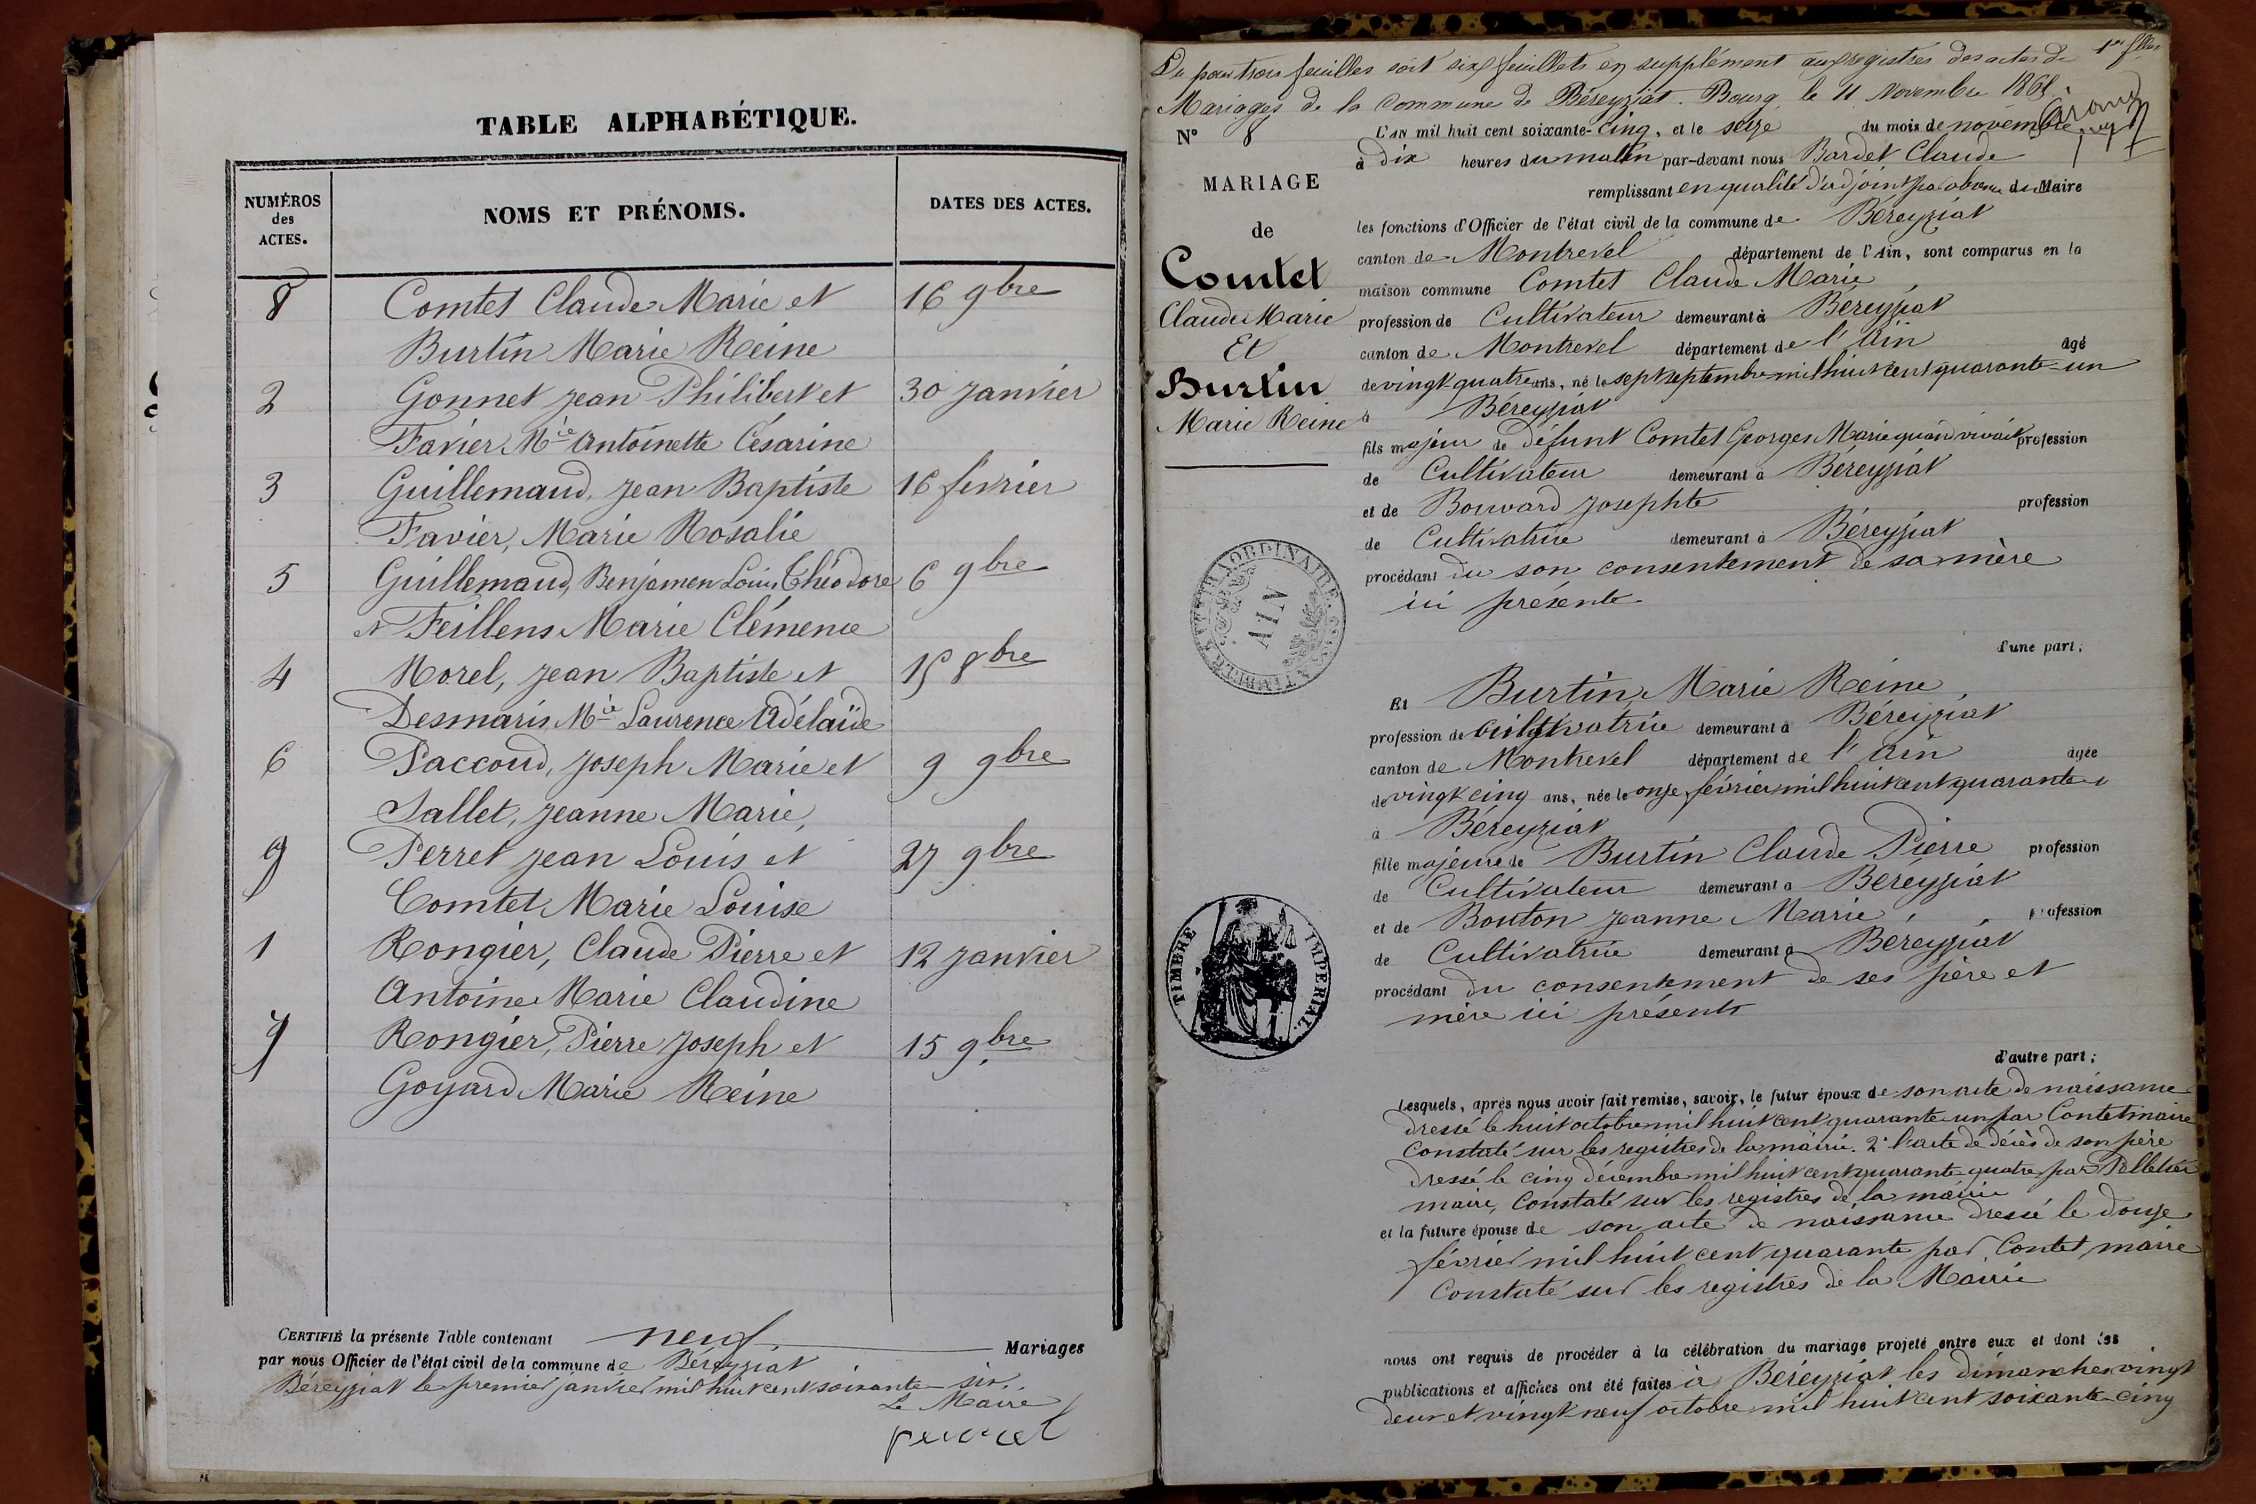 TABLE ALPHABÉTIQUE.
NUMÉROS des ACTES.
NOMS ET PRÉNOMS.
DATES DES ACTES.
8 Comtet Claude Marie et 16 9bre
Burtin Marie Reine
2 Gonnet Jean Philibert et 30 Janvier
Favier Mie Antoinette Césarine
3 Guillemaud, Jean Baptiste 16 février
Favier, Marie Rosalie
5 Guillemaud, Benjamen Louis Théodore 6 9bre
et Feillens Marie Clémence
4 Morel, Jean Baptiste et 15 8bre
Desmaris, Mie Laurence Adélaïde
6 Paccoud, Joseph Marie et 9 9bre
Sallet, Jeanne Marie,
9 Perret Jean Louis et 27 9bre
Comtet Marie Louise
1 Rongier, Claude Pierre et 12 Janvier
Antoine Marie Claudine
7 Rongier, Pierre Joseph et 15 9bre
Goyard Marie Reine
CERTIFIÉ la présente Table contenant neuf Mariages
par nous Officier de l'état civil de la commune de Béreyziat
Béreyziat le premier janvier mil huit cent soixante six.
Le Maire
trois feuilles soit six feuillets en supplément aux registres des actes de
Mariages de la Commune de Béreyziat. Bourg, le 11 Novembre
N° 8
MARIAGE
de
Comtet
Claude Marie
Et
Burtin
Marie Reine
L'AN mil huit cent soixante-cinq, et le seize du mois de novembre
à dix heures du matin par-devant nous Bardet Claude
remplissant en qualité d'adjoint par absence du Maire
les fonctions d'Officier de l'état civil de la commune de Béreyziat
canton de Montrevel département de l'Ain, sont comparus en la
maison commune Comtet Claude Marie
profession de Cultivateur demeurant à Béreyziat
canton de Montrevel département de l'Ain âgé
de vingt quatre ans, né le sept septembre mil huit cent quarante-un
à Béreyziat
fils majeur de défunt Comtet Georges Marie quand vivait profession
de Cultivateur demeurant à Béreyziat
et de Bouvard Josephte profession
de Cultivatrice demeurant à Béreyziat
procédant du son consentement de sa mère
ici présente
d'une part;
TIMBRE EXTRAORDINAIRE
AIN
Et Burtin, Marie Reine,
profession de cultivatrice demeurant à Béreyziat
canton de Montrevel département de l'Ain âgée
de vingt cinq ans, née le onze février mil huit cent quarante
à Béreyziat
fille majeure de Burtin Claude Pierre profession
de Cultivateur demeurant à Béreyziat
et de Bouton Jeanne Marie, profession
de Cultivatrice demeurant à Béreyziat
procédant du consentement de ses père et
mère ici présents
TIMBRE IMPÉRIAL.
d'autre part;
Lesquels, après nous avoir fait remise, savoir, le futur époux de son acte de naissance
dressé le huit octobre mil huit cent quarante un par Contet maire
Constaté sur les registres de la mairie. 2° l'acte de décès de son père
dressé le cinq décembre mil huit cent quarante quatre par Pelletier
maire, Constaté sur les registres de la mairie
et la future épouse de son acte de naissance dressé le douze
février mil huit cent quarante par Contet maire
Constaté sur les registres de la Mairie
nous ont requis de procéder à la célébration du mariage projeté entre eux et dont les
publications et affiches ont été faites à Béréyziat les dimanches vingt
deux et vingt neuf octobre mil huit cent soixante-cinq